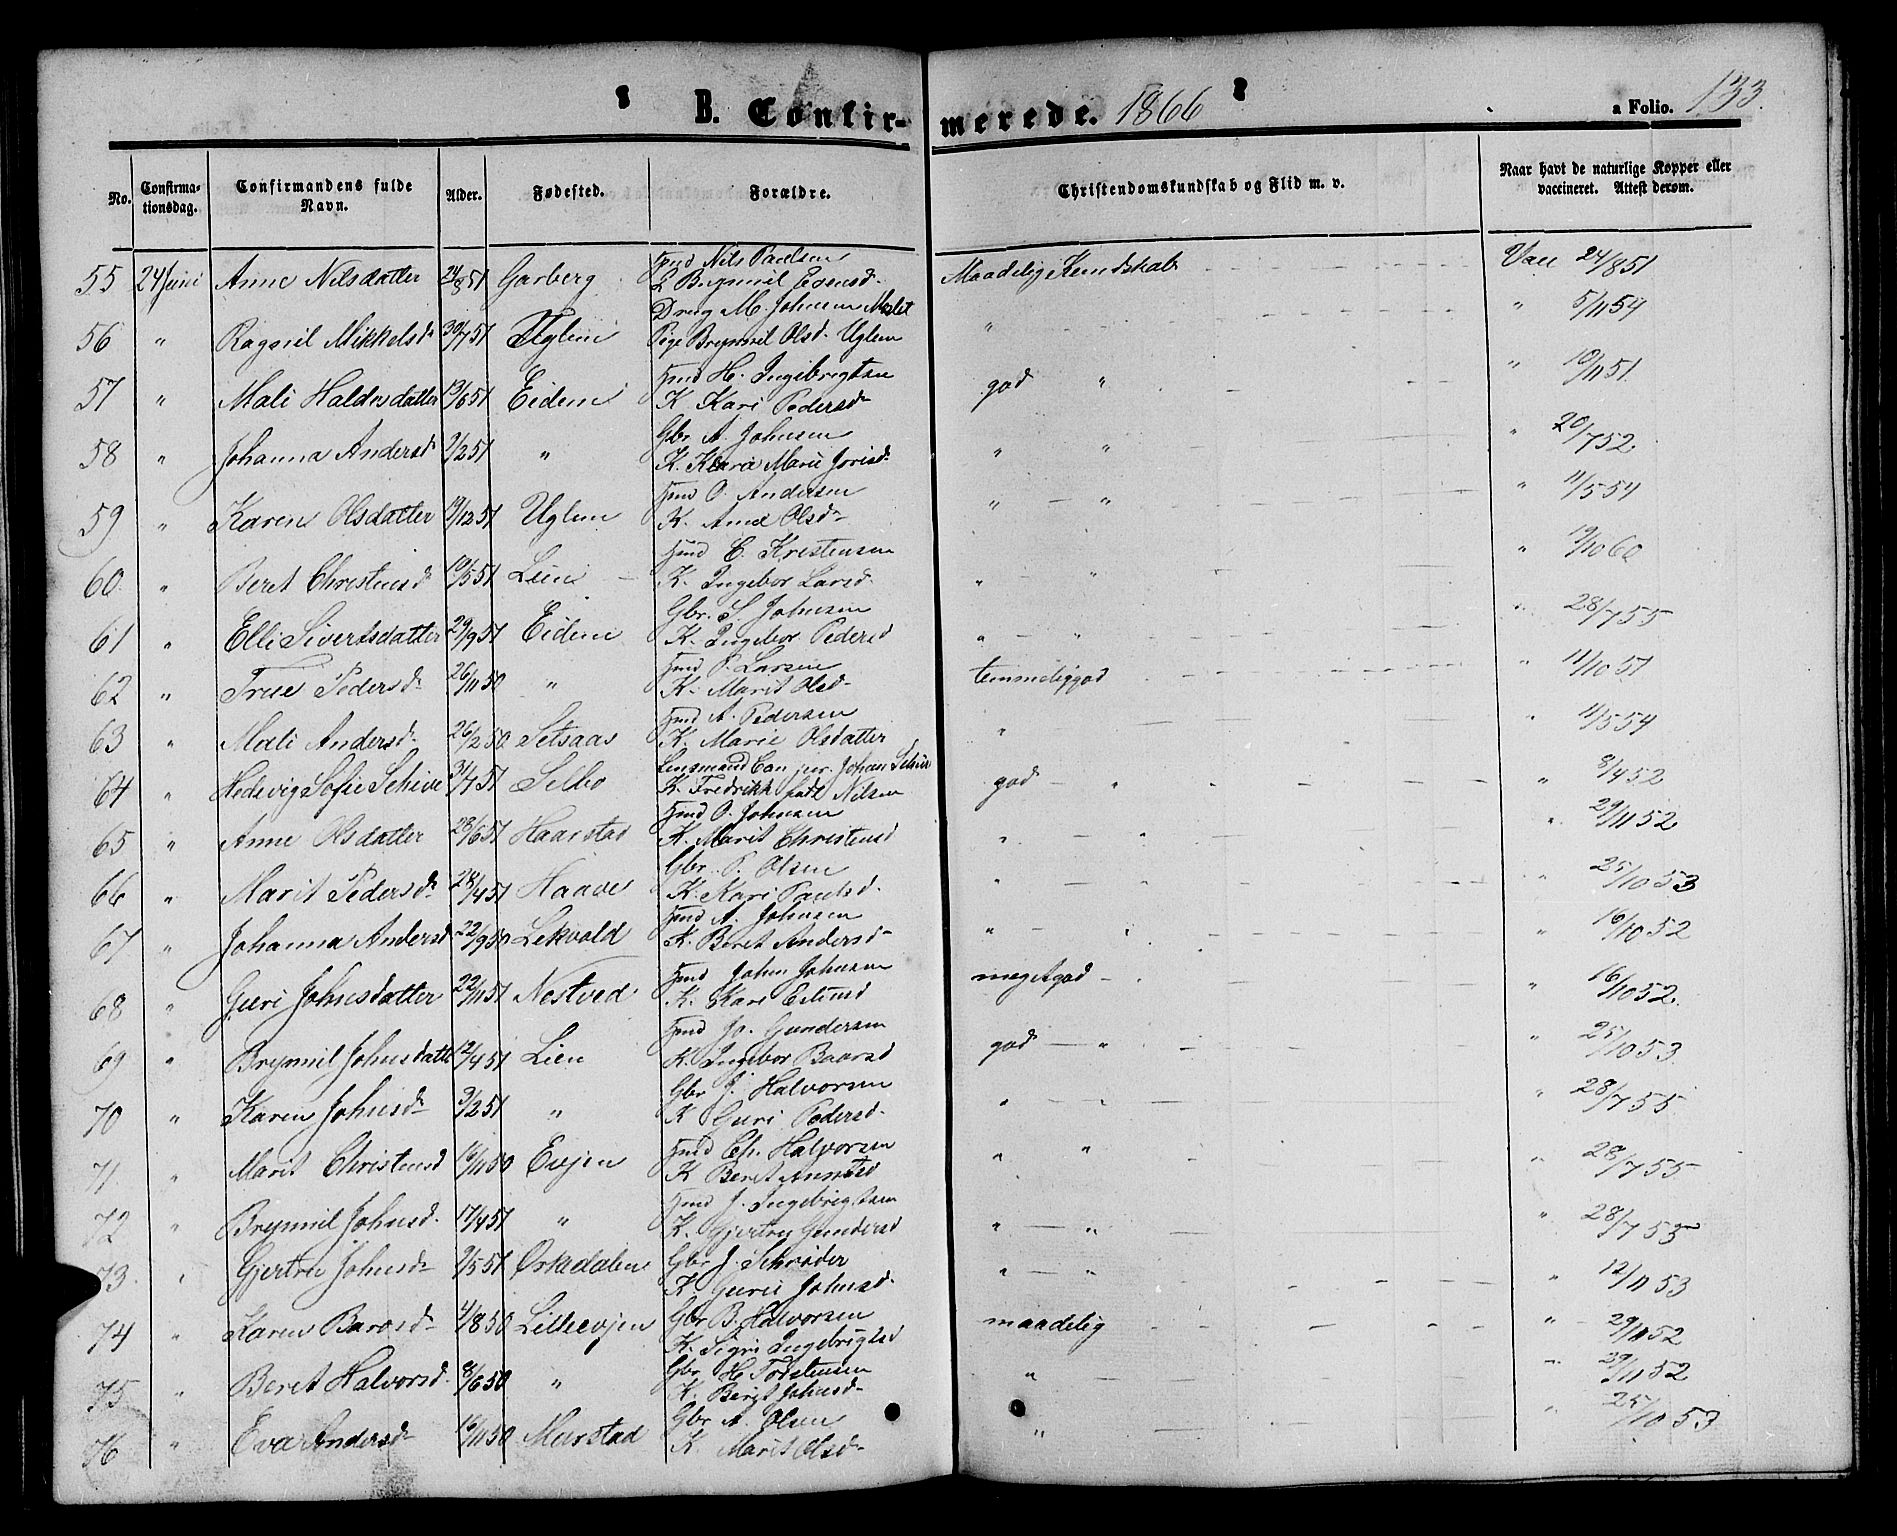 B. Confirmerede. 1866 a Folio. 133.
No. Confirmationsdag. Confirmandens fulde Navn. Alder. Fødested. Forældre. Christendomskundskab og Flid m. v. Naar havt de naturlige Kopper eller vaccineret. Attest derom.
55 24 Juni Anne Nilsdatter 24/8 51 Garberg Hmd Nils Paulsen Maadelig Kundskab Vac 24/8 51
56 " Ragnil Mikkelsd 30/7 51 Uglem Dreng M. Johnsen " " 5/11 54
Pige Brynnil Olsd. Uglem
57 " Mali Haldorsdatter 13/6 51 Eidem Hmd H. Ingebrigtsen god " " 10/11 51
K. Kari Pedersd
58 " Johanna Andersd 2/2 51 " Gbr. A. Johnsen " " " 20/7 52
K. Kari Marie
59 " Karen Olsdatter 19/12 51 Uglem Hmd O. Andersen " " " 11/5 54
K. Olsd
60 " Beret Christensd 10/5 51 Lien Hmd C. Kristensen " " " 19/10 60
K. Ingebor Larsd
61 " Elli Sivertsdatter 29/9 51 Eidem Gbr. S. Johnsen " " " 28/7 55
K. Ingebor Pedersd
62 " Pedersd 26/11 50 " Hmd P. Larsen temmelig god " 11/10 51
K. Marit Olsd
63 " Mali Andersd 26/2 50 Setsaas Hmd A. Pedersen " " 11/5 54
K. Marie Olsdatter
64 " Hedevig Sofie Schive 31/7 51 Selbo Lensmand god " " 8/4 52
K. Fredrikk Nilsen
65 " Anne Olsdatter 28/6 51 Haarstad Hmd O. Johnsen " " " 29/11 52
K. Marit Christensd
66 " Marit Pedersd 28/4 51 Haave Gbr. P. Olsen " " " 25/10 53
K. Kari Paulsd.
67 " Johanna Andersd 22/9 50 Lekvold Hmd A. Johnsen " " " 16/10 52
K. Beret Andersd
68 " Guri Johnsdatter 22/11 51 Nestved Hmd John Johnsen meget god " 16/10 52
K. Kari
69 " Brynnil Johnsdatt 12/4 51 Lien Hmd Jo. Gundersen god " " 25/10 53
K. Ingebor Baarsd
70 " Karen Johnsd 3/2 51 " Gbr J. Halvorsen " " 28/7 55
K Guri Pedersd.
71 " Marit Christensd 16/11 50 Evjen Hmd Ch. Halvorsen " " " 28/7 55
K Beret
72 " Brynnil Johnsd. 17/4 51 " Hmd J. Ingebrigtsen " " " 28/7 53
K. Gjertru Gundersd
73 " Gjertru Johnsd 9/5 51 Orkadalen Gbr J. Schrøder " " " 12/11 53
K. Guru Johnsd.
74 " Karen Baarsd 4/8 50 Lilleevjen Gbr B. Halvorsen maadelig " 29/11 52
K. Sigri Ingebrigtsd
75 " Beret Halvorsd. 8/6 50 " Gbr H. Torstensen " " 29/11 52
K. Beret Johnsd
76 " Eva Andersd 16/11 50 Murstad Gbr A. Olsen " " 25/10 53
K Marit Olsd